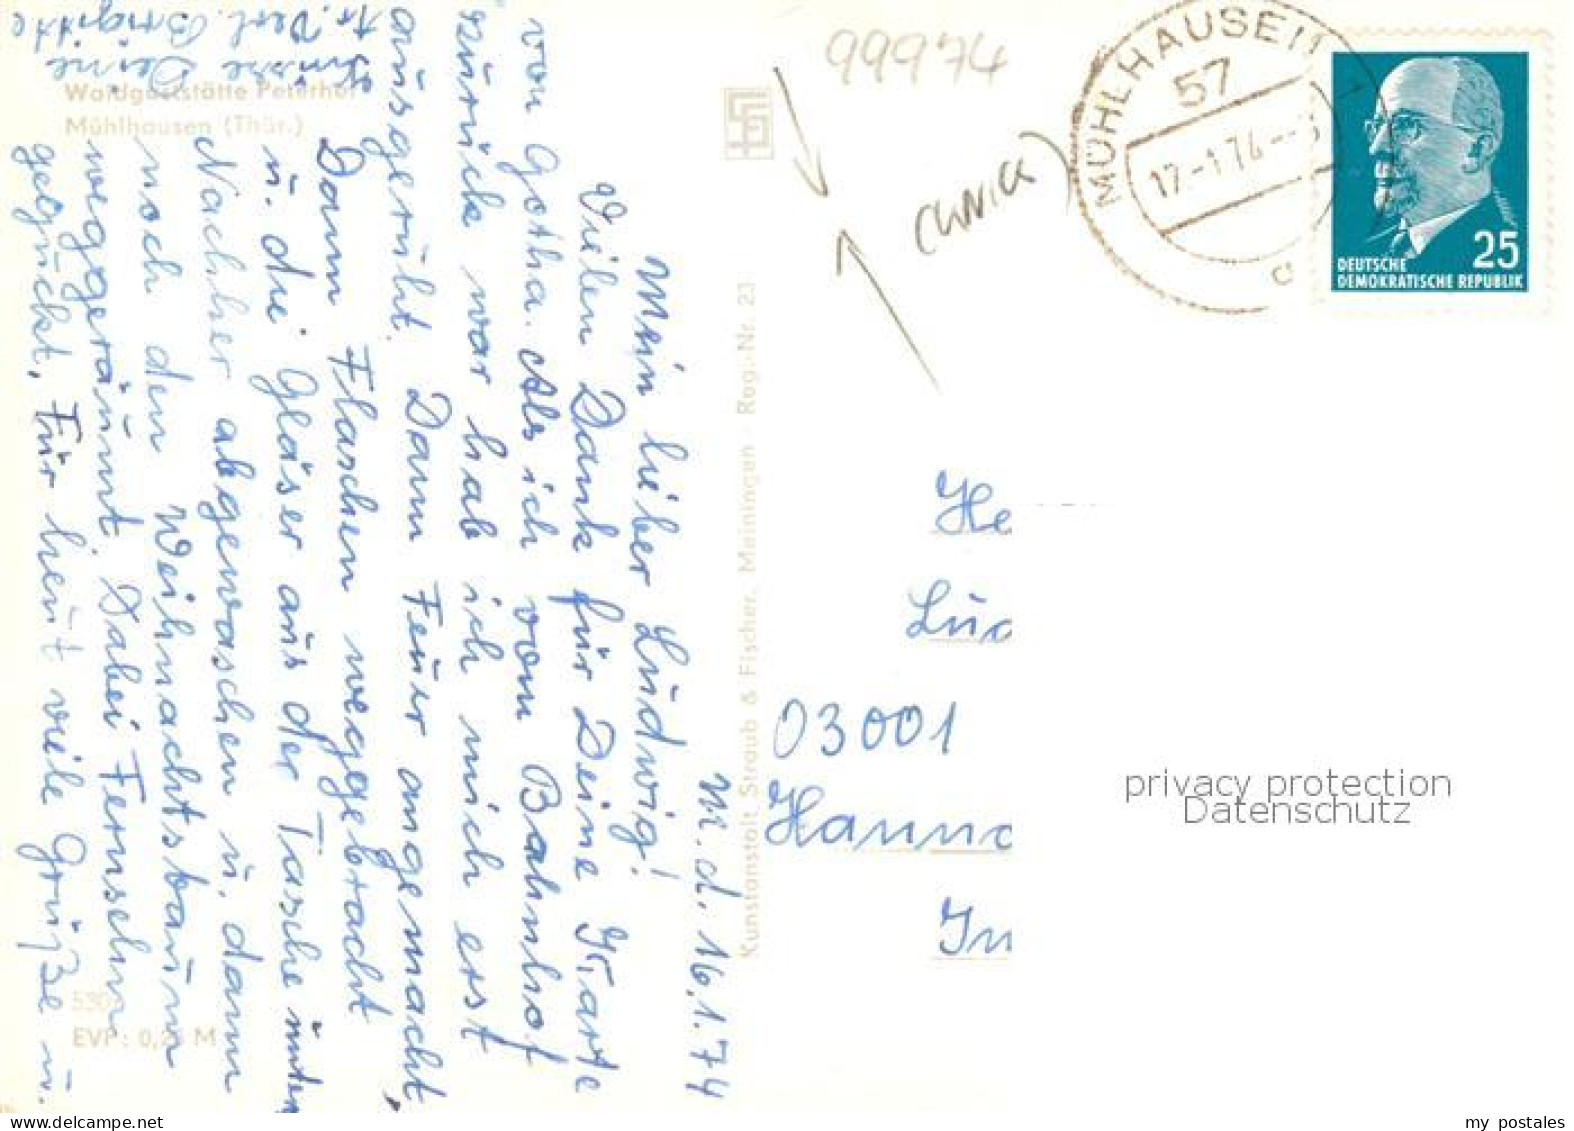 M. d. 16.1.74
Mein lieber Ludwig!
Vielen Dank für Deine Karte
von Gotha. Als ich vom Bahnhof
zurück war hab ich mich erst
ausgeruht. Dann Feur angemacht,
Dann Flaschen weggebracht
u. die Gläser aus der Tasche unten
Nachher abgewaschen u. dann
noch den Weihnachtsbaum
weggeräumt. Dabei Fernsehn
geguckt. Für heut viele Grüße u.
Küsse Deine
Tr. Verl. Brigitte
Waldgaststätte Peterhof
Mühlhausen (Thür.)
EVP: 0,25 M
Kunstanstalt Straub & Fischer, Meiningen - Reg.-Nr. 23
99974
MÜHLHAUSEN
57
17.-1.74
c
25
DEUTSCHE
DEMOKRATISCHE REPUBLIK
He
Lud
03001
Hanno
In
privacy protection
Datenschutz
my postales
www.delcampe.net